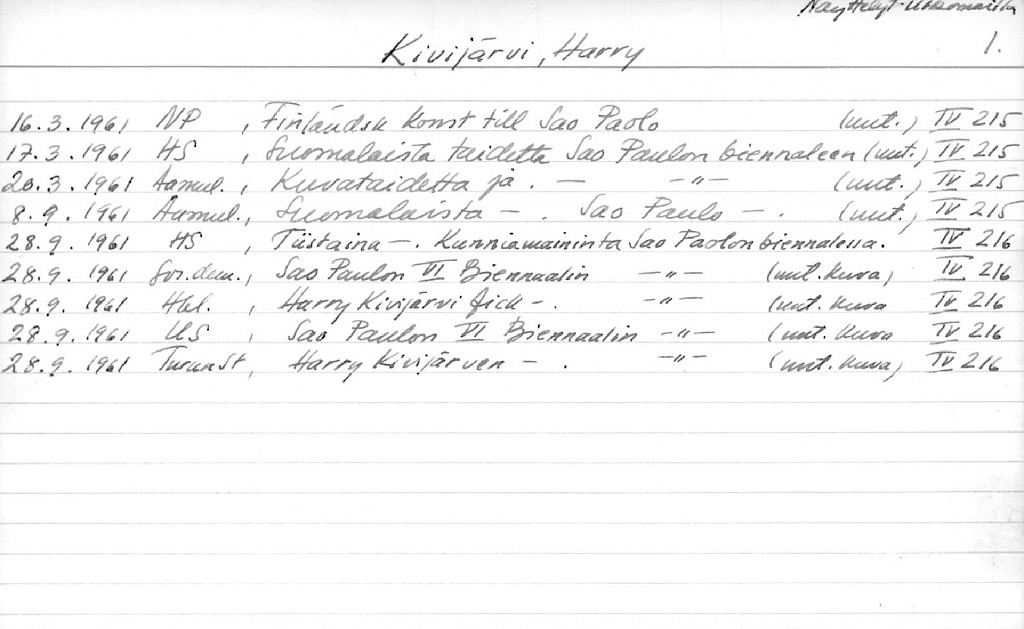 Näyttelyt ulkomailla
Kivijärvi, Harry 1.
16.3.1961 NP , Finländsk konst till Sao Paolo (mut.) IV 215
17.3.1961 HS , Suomalaista taidetta Sao Paulon biennaleen (mut.) IV 215
20.3.1961 Aamul., Kuvataidetta ja . — —"— (mut.) IV 215
8.9.1961 Aamul., Suomalaista — . Sao Paulo — . (mut.) IV 215
28.9.1961 HS , Tiistaina —. Kunniamaininta Sao Paolon biennalessa. IV 216
28.9.1961 Sos.dem., Sao Paulon VI Biennaalin —"— (mut. kuva) IV 216
28.9.1961 Hbl. , Harry Kivijärvi fick —. —"— (mut. kuva IV 216
28.9.1961 US , Sao Paulon VI Biennaalin —"— (mut. kuva IV 216
28.9.1961 Turun St , Harry Kivijärven — . —"— (mut. kuva) IV 216